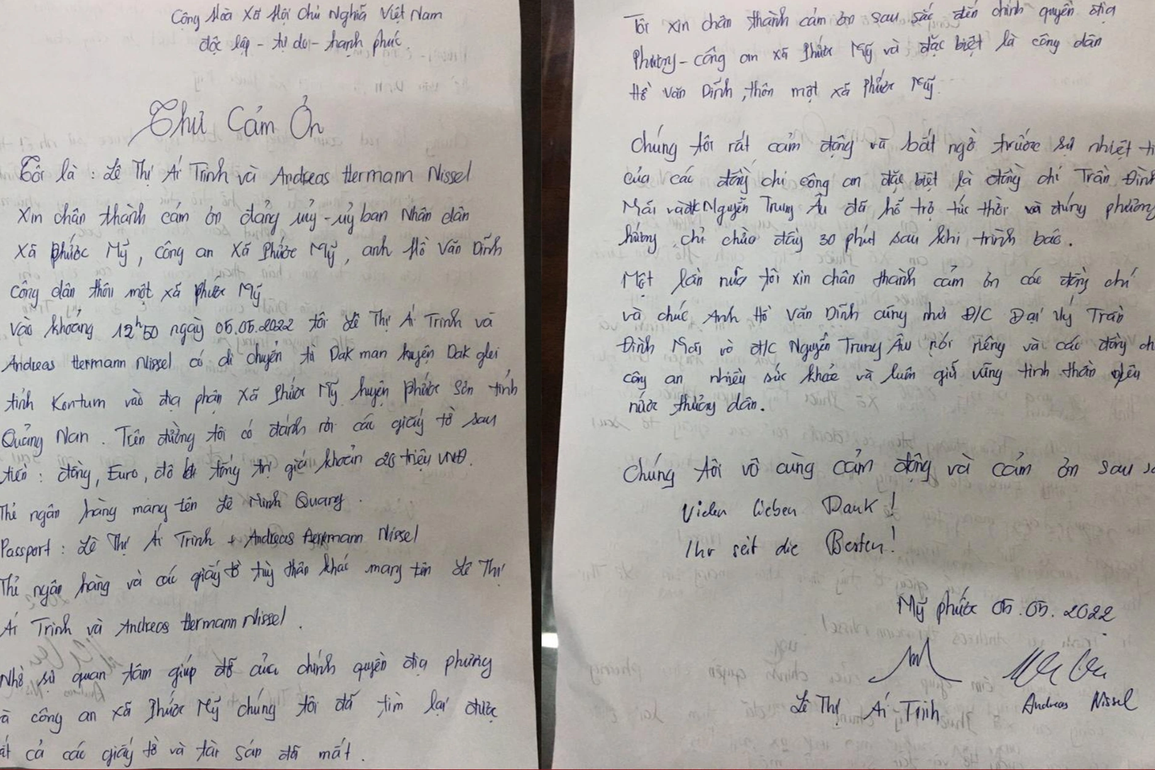 Cộng Hòa Xã Hội Chủ Nghĩa Việt Nam
độc lập - tự do - hạnh phúc
Thư Cảm Ơn
Tôi là : Lê Thị Ái Trinh và Andreas Hermann Nissel
Xin chân thành cám ơn đảng uỷ - uỷ ban Nhân dân
Xã Phước Mỹ, công an Xã Phước Mỹ, anh Hồ Văn Dĩnh
công dân thôn một xã Phước Mỹ
Vào khoảng 12h50 ngày 05.05.2022 tôi Lê Thị Ái Trinh và
Andreas Hermann Nissel có di chuyển từ Dak man huyện Dak glei
tỉnh Kontum vào địa phận Xã Phước Mỹ huyện phước Sơn tỉnh
Quảng Nan. Trên đường tôi có đánh rơi các giấy tờ sau
tiền : đồng, Euro, đô tổng trị giá khoản 28 triệu VNĐ.
Thẻ ngân hàng mang tên Lê Minh Quang.
Passport : Lê Thị Ái Trinh + Andreas Hermann Nissel
Thẻ ngân hàng và các giấy tờ tuỳ thân khác mang tên Lê Thị
Ái Trinh và Andreas Hermann Nissel.
Nhờ sự quan tâm giúp đỡ của chính quyền địa phương
và công an xã Phước Mỹ chúng tôi đã tìm lại được
tất cả các giấy tờ và tài sản đã mất.
Tôi xin chân thành cảm ơn sau sắc đến chính quyền địa
Phương - công an xã Phước Mỹ và đặc biệt là công dân
Hồ Văn Dĩnh, thôn một xã Phước Mỹ.
Chúng tôi rất cảm động và bất ngờ trước sự nhiệt
của các đồng chí công an đặc biệt là đồng chí Trần Đình
Mãi và đ/c Nguyễn Trung Âu đã hổ trợ tức thời và đúng phương
hướng. chỉ chào đầy 30 phút sau khi trình báo.
Một lần nữa tôi xin chân thành cảm ơn các đồng chí
và chúc Anh Hồ Văn Dĩnh cũng như Đ/C Đại uý Trần
Đình Mãi và đ/c Nguyễn Trung Âu nói riêng và các đồng
công an nhiều sức khỏe và luôn giữ vững tinh thần yêu
nước thương dân.
Chúng tôi vô cùng cảm động và cảm ơn sau
Vielen lieben Dank!
Ihr seit die Besten!
Mỹ phước 05.05.2022
Lê Thị Ái - Trinh
Andreas Nissel